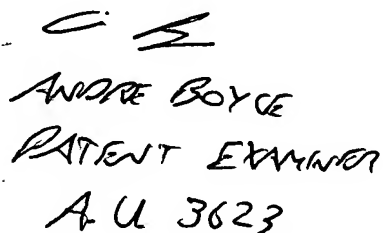 ANDRE BOYCE
PATENT EXAMINER
A.U 3623